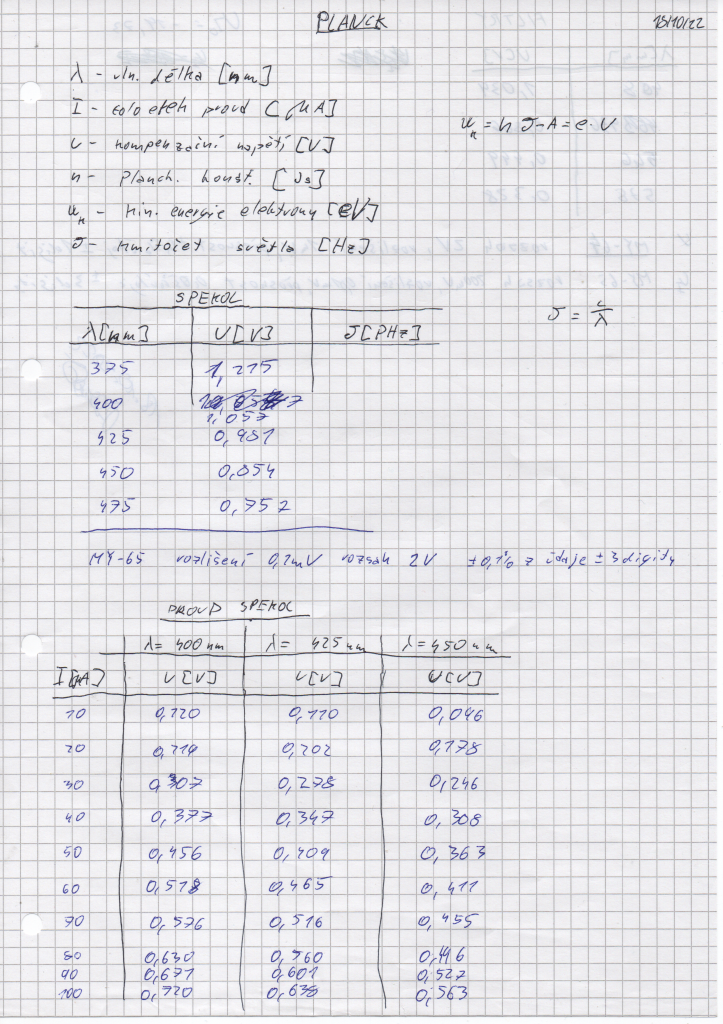 PLANCK 18/10/22
λ - vln. délka [nm]
I - fotoelek proud [μA]
U - kompenzační napětí [V]
h - Planck. konst. [Js]
W_k - kin. energie elektronu [eV]
f - kmitočet světla [Hz]
W_k = h f - A = e · U
SPEKOL
λ [nm] U [V] f [PHz]
f = c/λ
375 1,215
400
1,057
425 0,981
450 0,854
475 0,752
MY-65 rozlišení 0,1mV rozsah 2V ±0,1% z údaje ±3 digity
PROUD SPEKOL
λ = 400 nm λ = 425 nm λ = 450 nm
I [μA] U [V] U [V] U [V]
10 0,120 0,110 0,096
20 0,219 0,202 0,178
30 0,307 0,278 0,246
40 0,377 0,347 0,308
50 0,456 0,409 0,363
60 0,518 0,465 0,411
70 0,576 0,516 0,455
80 0,630 0,560 0,496
90 0,671 0,601 0,527
100 0,720 0,638 0,563